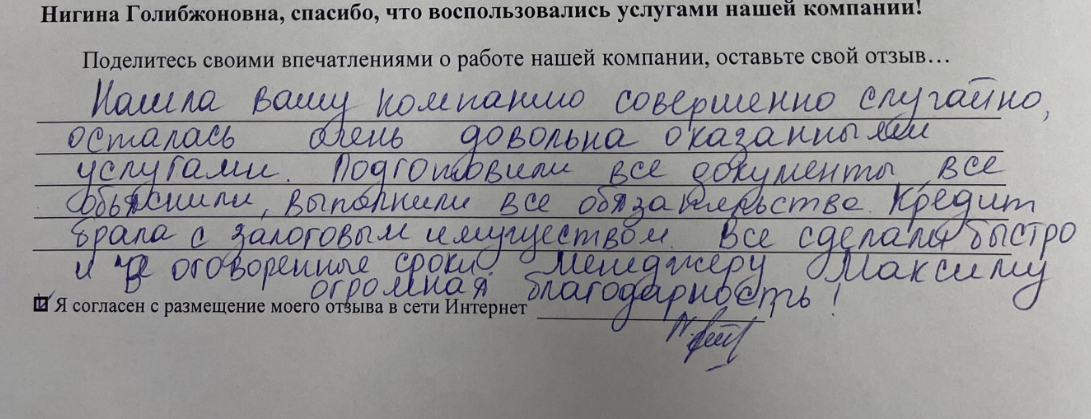 Нигина Голибжоновна, спасибо, что воспользовались услугами нашей компании!
Поделитесь своими впечатлениями о работе нашей компании, оставьте свой отзыв…
Нашла вашу компанию совершенно случайно,
осталась очень довольна оказанными
услугами. Подготовили все документы все
объяснили, выполнили все обязательства. Кредит
брала с залоговым имуществом. Все сделали быстро
и в оговоренные сроки. Менеджеру Максиму
огромная благодарность!
Я согласен с размещение моего отзыва в сети Интернет